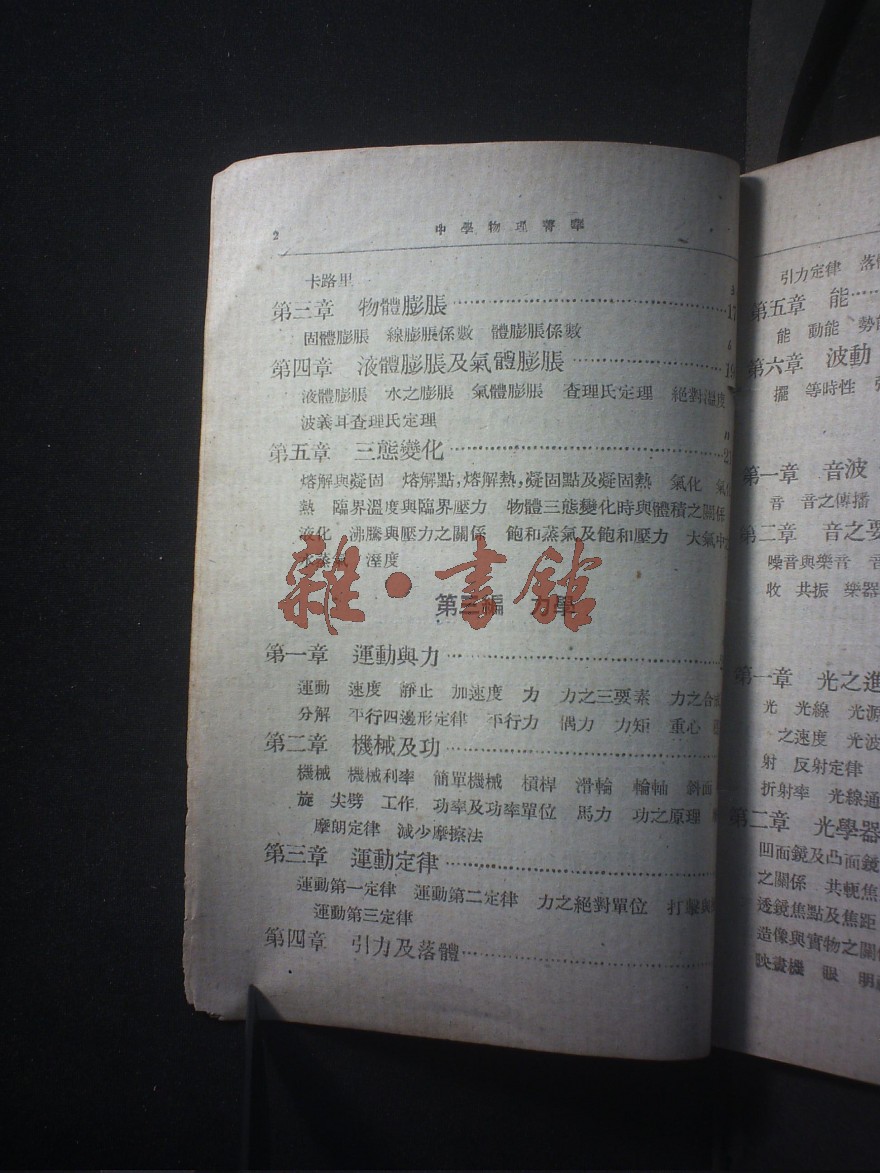 2
中學物理菁華
卡路里
第三章 物體膨脹 17
固體膨脹 線膨脹係數 體膨脹係數
第四章 液體膨脹及氣體膨脹
液體膨脹 水之膨脹 氣體膨脹 查理氏定理 絕對溫度
波義耳查理氏定理
第五章 三態變化
熔解與凝固 熔解點,熔解熱,凝固點及凝固熱 氣化
熱 臨界溫度與臨界壓力 物體三態變化時與體積之關係
液化 沸騰與壓力之關係 飽和蒸氣及飽和壓力 大氣中
水蒸氣 溼度
雜·書館
第三編 力學
第一章 運動與力
運動 速度 靜止 加速度 力 力之三要素 力之合
分解 平行四邊形定律 平行力 偶力 力矩 重心
第二章 機械及功
機械 機械利率 簡單機械 槓桿 滑輪 輪軸 斜面
旋 尖劈 工作 功率及功率單位 馬力 功之原理
摩朗定律 減少摩擦法
第三章 運動定律
運動第一定律 運動第二定律 力之絕對單位 打擊與
運動第三定律
第四章 引力及落體
引力定律 落
第五章 能
能 動能 勢
第六章 波動
擺 等時性
第一章 音波
音 音之傳播
第二章 音之要
噪音與樂音 音
收 共振 樂器
第一章 光之進
光 光線 光源
之速度 光波
射 反射定律
折射率 光線通
第二章 光學器
凹面鏡及凸面鏡
之關係 共軛焦
透鏡焦點及焦距
造像與實物之關係
映畫機 眼 明